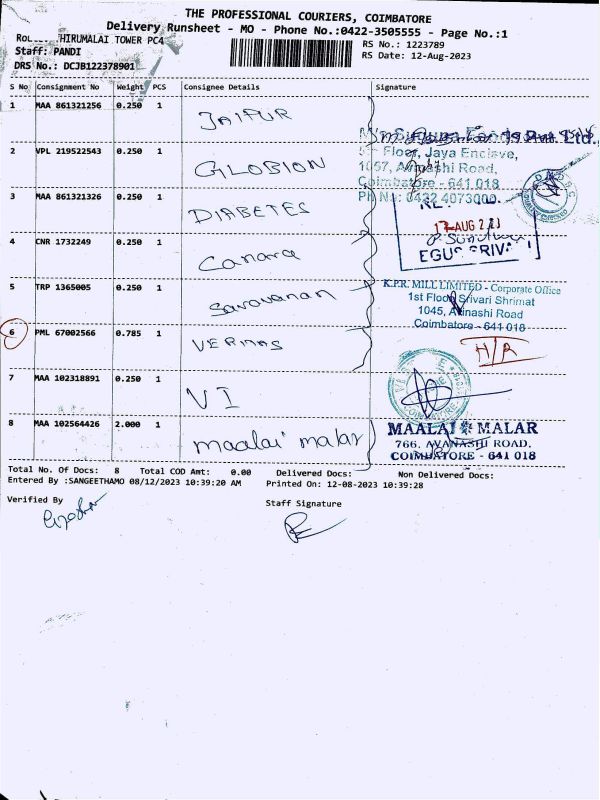 THE PROFESSIONAL COURIERS, COIMBATORE
Delivery Runsheet - MO - Phone No.:0422-3505555 - Page No.:1
HIRUMALAI TOWER PC4
RS No.: 1223789
Staff: PANDI
RS Date: 12-Aug-2023
DRS No.: DCJB122378901
S No Consignment No Weight PCS Consignee Details Signature
1 MAA 861321256 0.250 1 JAIPUR
Pvt. Ltd.,
Floor, Jaya Enclave,
2 VPL 219522543 0.250 1 GLOBION
1057, Avinashi Road,
Coimbatore - 641 018
3 MAA 861321326 0.250 1 DIABETES
Ph No: 0422 4073000
AUG
4 CNR 1732249 0.250 1 Canara
5 TRP 1365005 0.250 1 Saravanan
K.P.R. MILL LIMITED - Corporate Office
1st Floor, Srivari Shrimat
1045, Avinashi Road
Coimbatore - 641 018
6 PML 67002566 0.785 1 VERITAS
H/R
7 MAA 102318891 0.250 1 VI
8 MAA 102564426 2.000 1 maalai malar
MAALAI MALAR
766, AVANASHI ROAD,
COIMBATORE - 641 018
Total No. Of Docs: 8 Total COD Amt: 0.00 Delivered Docs: Non Delivered Docs:
Entered By :SANGEETHAMO 08/12/2023 10:39:20 AM Printed On: 12-08-2023 10:39:28
Verified By
Staff Signature